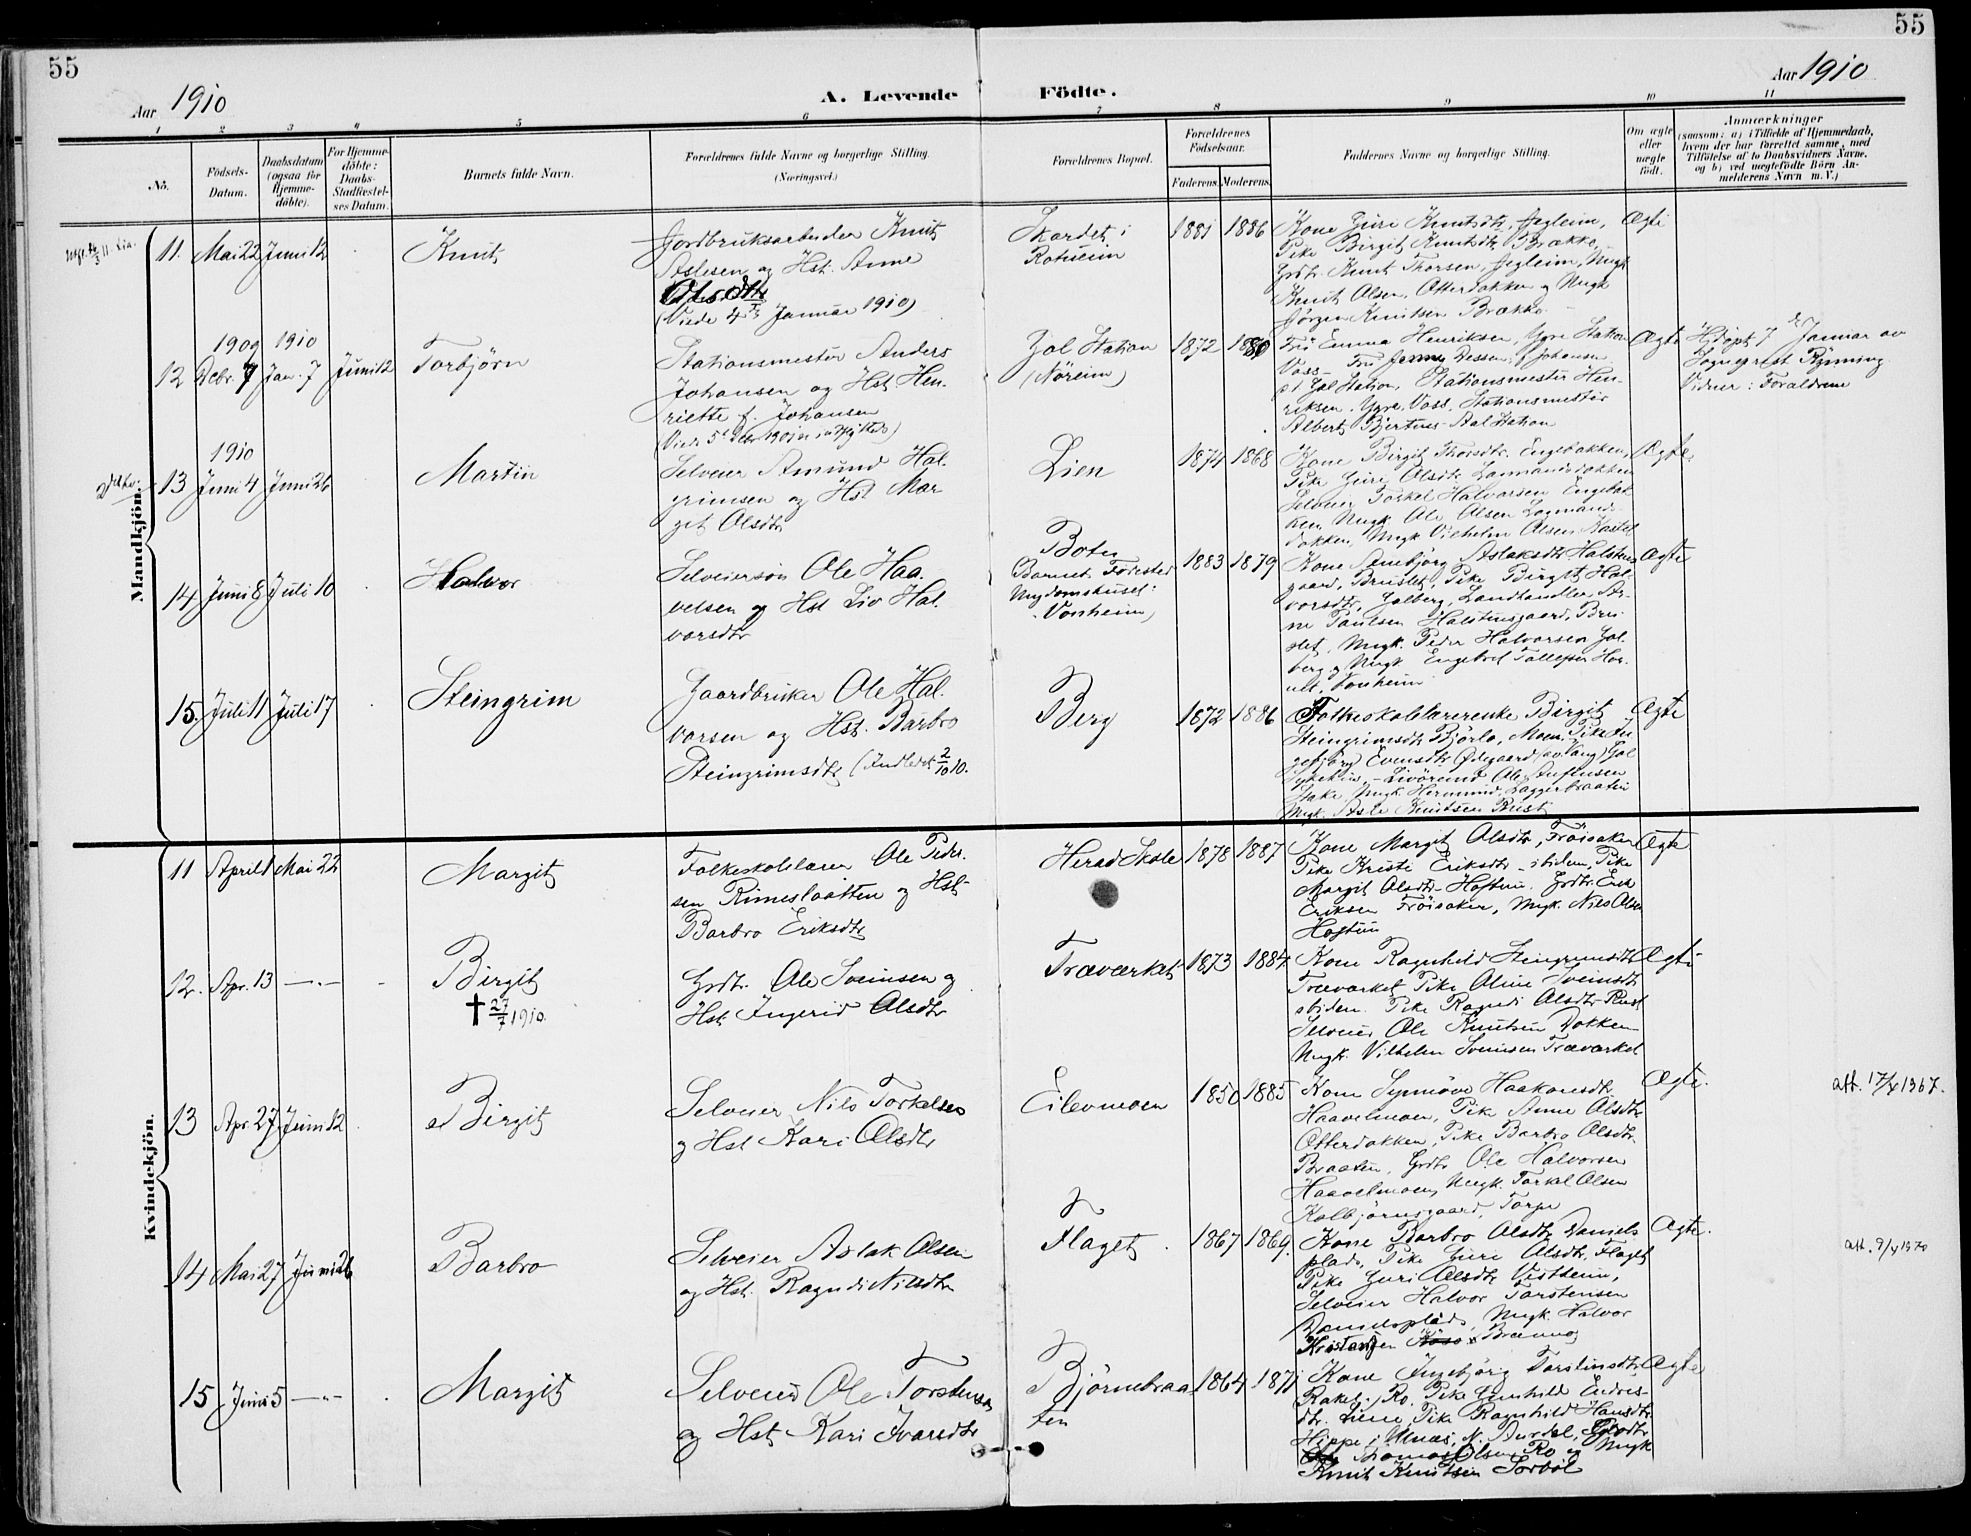 55
55
Aar 1910
A. Levende Födte.
Aar 1910
1 2 3 4 5 6 7 8 9 10 11
No.
Födsels-
Datum.
Daabsdatum
(ogsaa for
Hjemme-
döbte).
For Hjemme-
döbte:
Daabs-
Stadfæstel-
ses Datum.
Barnets fulde Navn.
Forældrenes fulde Navne og borgerlige Stilling.
(Næringsvei.)
Forældrenes Bopæl.
Forældrenes
Födselsaar.
Faderens. Moderens.
Faddernes Navne og borgerlige Stilling.
Om ægte
eller
uægte
födt.
Anmærkninger
(saasom: a) i Tilfælde af Hjemmedaab,
hvem der har forrettet samme, med
Tilföielse af to Daabsvidners Navne.
og b) ved uægtefödte Börn An-
melderens Navn m. V.)
Mandkjön.
11. Mai 22 Juni 12
Knut
Jordbruksarbeider Knut
Aslesen og Hst. Anne
Olsdtr
(Viede 4de Januar 1910)
Skardet i
Rotneim
1881 1886
Kone Guri Knutsdtr Jegleim,
Pike Birgit Knutsdtr Brække,
Grdbr. Knut Thorsen, Jegleim, Ungk
Knut Olsen, Otterdokken og Ungk
Jörgen Knutsen Brække
Ægte
1909 1910
12 Decbr. 7 Jan. 7 Juni 12
Torbjörn
Stationsmester Anders
Johansen og Hst Hen-
riette f. Johansen
Gol Station
(Nöreim)
1872 1880
Fru Emma Henriksen, Ygre Station
Voss - Fru Dessen, f. Johansen
p.t. Gol Station, Stationsmester Hen-
riksen, Ygre, Voss, Stationsmester
Albert Bjertnes Aal Station
Ægte
Hjdöpt 7de Januar av
Sogneprest Rynning
Vidner: Forældrene
1910
13 Juni 4 Juni 26
Martin
Selveier Amund Hal-
grimsen og Hst Mar
git Olsdtr
Lien
1874 1868
Kone Birgit Thorsdtr. Engebakken,
Pike Guri Olsdtr. Lagmandsdokken
Selveier Torkel Halvorsen Engebak
ken, Ungk Ole Olsen Lagmands-
dokken, Ungk Vilhelm Olsen
Ægte.
14 Juni 8 Juli 10
Halvor
Selveiersön Ole Haa-
velsen og Hst Liv Hal-
vorsdtr
Boten
Barnets Födested
Ungdomshuset
Vonheim)
1883 1879
Kone Sennbjörg Aslaksdtr Halstens
gaard, Bruslet, Pike Birgit Hal-
vorsdtr, Golberg, Landhandler Ar-
ne Paulsen Halstensgaard, Brus-
let, Ungk. Peder Halvorsen Gol-
berg og Ungk Engebret Tollefsen Hoe-
ult, Vonheim
Ægte
15. Juli 11 Juli 17
Steingrim
Gaardbruker Ole Hal-
vorsen og Hst. Barbro
Steingrimsdtr (Indledet 2/10 10.
Berg
1872 1886
Folkeskolelærerinde Birgit
Steingrimsdtr Björlo, Moen, Pike In
gebjörg Evensdtr Ödegaard (av Vang) Gol
Sykehus, - Livöreind Ole Austensen
Stake, Ungk Hermund Laggerbraaten
Ungk. Asle Knutsen Rust
Ægte
Kvindekjön.
11 April 1 Mai 22
Margit
Folkeskolelærer Ole Peder-
sen Rimeslaatten og Hst
Barbro Eriksdtr
Herad Skole
1878 1887
Kone Margit Olsdtr, Fröisaker
Pike Kristi Eriksdtr - ibidem, Pike
Margit Olsdtr Hoftun. Grdbr. Erik
Eriksen Fröisaker, Ungk. Nils Olsen
Hoftun
Ægte
12. Apr. 13 —"—
Birgit
✝ 27/7 1910.
Grdbr. Ole Svensen og
Hst. Ingerid Olsdtr
Træværket
1873 1884
Kone Ragnhild Steingrimsdtr
Træværket Pike Oline Svensdtr
ibidem. Pike Ragndi Olsdtr Rust
Selveier Ole Knutsen Dokken
Ungk. Vilhelm Svensen Træværket
Ægte
13 Apr 27 Juni 12
Birgit
Selveier Nils Torkelsen
og Hst Kari Olsdtr
Eilevmoen
1850 1885
Kone Synnöve Haakonsdtr
Haavelmoen, Pike Anne Olsdtr
Otterdokken, Pike Barbro Olsdtr.
Braaten, Grdbr Ole Halvorsen
Haavelmoen, Ungk. Torkel Olsen
Kolbjörnsgaard, Torpe
Ægte.
att. 17/4 1967.
14 Mai 27 Juni 26
Barbro
Selveier Aslak Olsen
og Hst. Ragndi Nilsdtr
Flaget
1867 1869.
Kone Barbro Olsdtr Daniels
plads, Pike Guri Olsdtr, Flaget
Pike Guri Olsdtr Vestheim,
Selveier Halvor Torstensen
Danielsplads, Ungk Halvor
Kristensen Brenno
Ægte.
att. 9/4 1970
15 Juni 5 —"—
Margit
Selveier Ole Torstensen
og Hst Kari Ivarsdtr
Björnebraa
ten
1864 1871
Kone Ingebjörg Torstensdtr
Rakel, Ro. Pike Gunhild Endres-
dtr. Lien, Pike Ragnhild Hansdtr.
Hippe i Ulnes, N. Aurdal, Grdbr
Thomas Olsen Ro og Ungk
Knut Knutsen Sorböl
Ægte